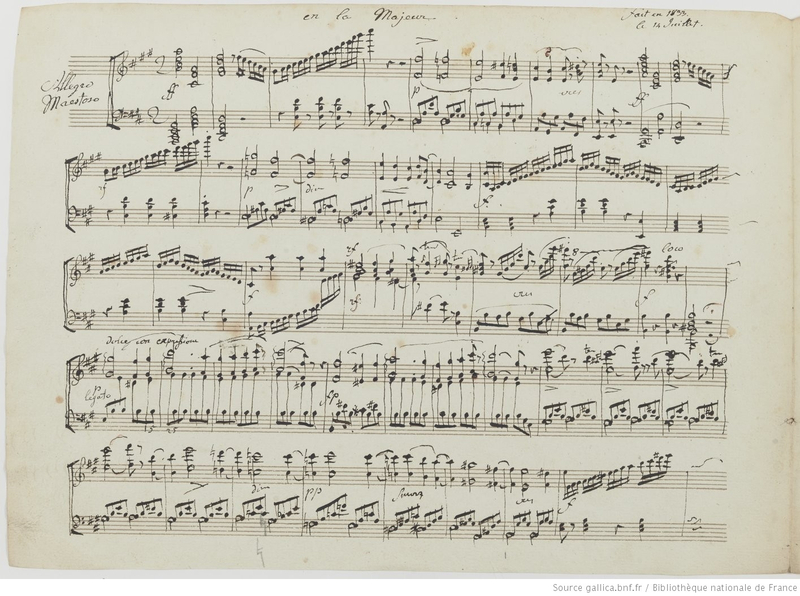 en la Majeur
fait en 1833
le 14 Juillet.
Allegro
Maestoso
ff
p
cres
ff
sf
p
dim
f
sf
loco
f
sf
cres
f
dolce con expression
legato
fp
dim
pp
smorz
cres
f
Source gallica.bnf.fr / Bibliothèque nationale de France